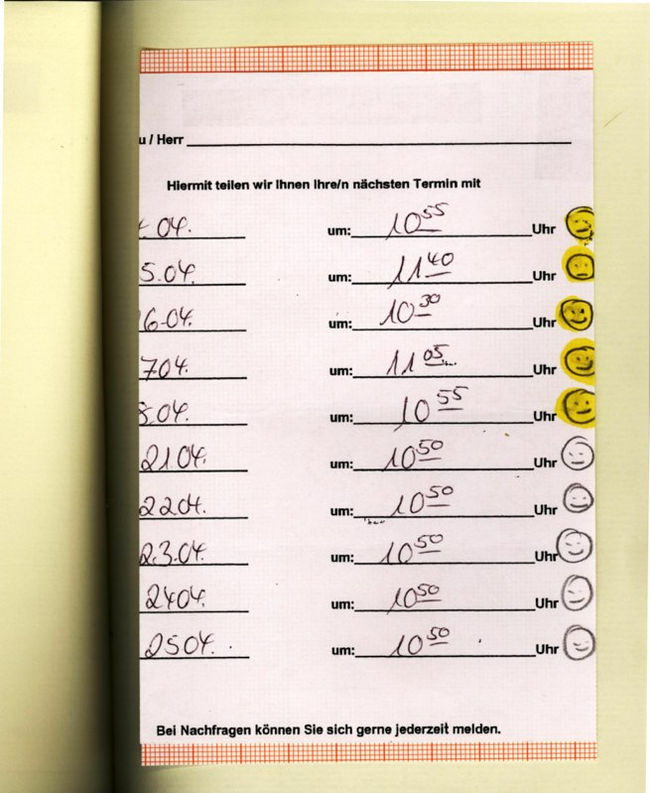 u / Herr
Hiermit teilen wir Ihnen Ihre/n nächsten Termin mit
04. um: 10 55 Uhr
5.04. um: 11 40 Uhr
6.04. um: 10 30 Uhr
704. um: 11 05 Uhr
8.04. um: 10 55 Uhr
21.04. um: 10 50 Uhr
2204. um: 10 50 Uhr
23.04. um: 10 50 Uhr
2404. um: 10 50 Uhr
2504. um: 10 50 Uhr
Bei Nachfragen können Sie sich gerne jederzeit melden.